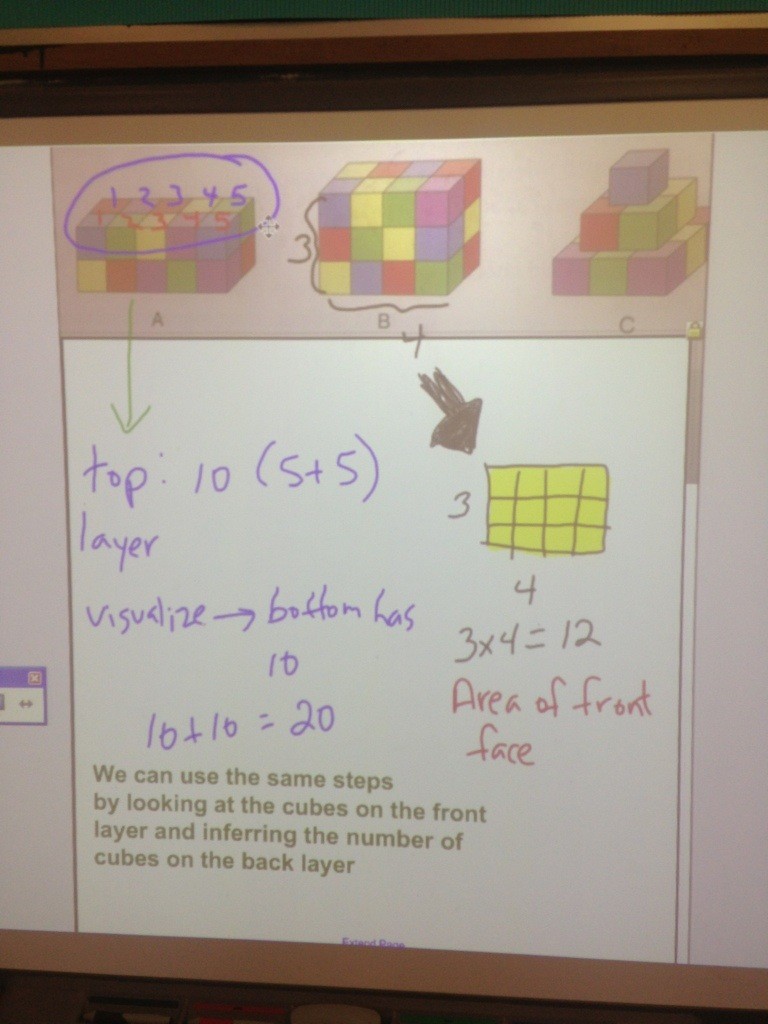 1 2 3 4 5
1 2 3 4 5
3
A
B
C
4
top: 10 (5+5)
layer
3
4
visualize → bottom has
10
3x4 = 12
10+10 = 20
Area of front
face
We can use the same steps
by looking at the cubes on the front
layer and inferring the number of
cubes on the back layer
Extend Page